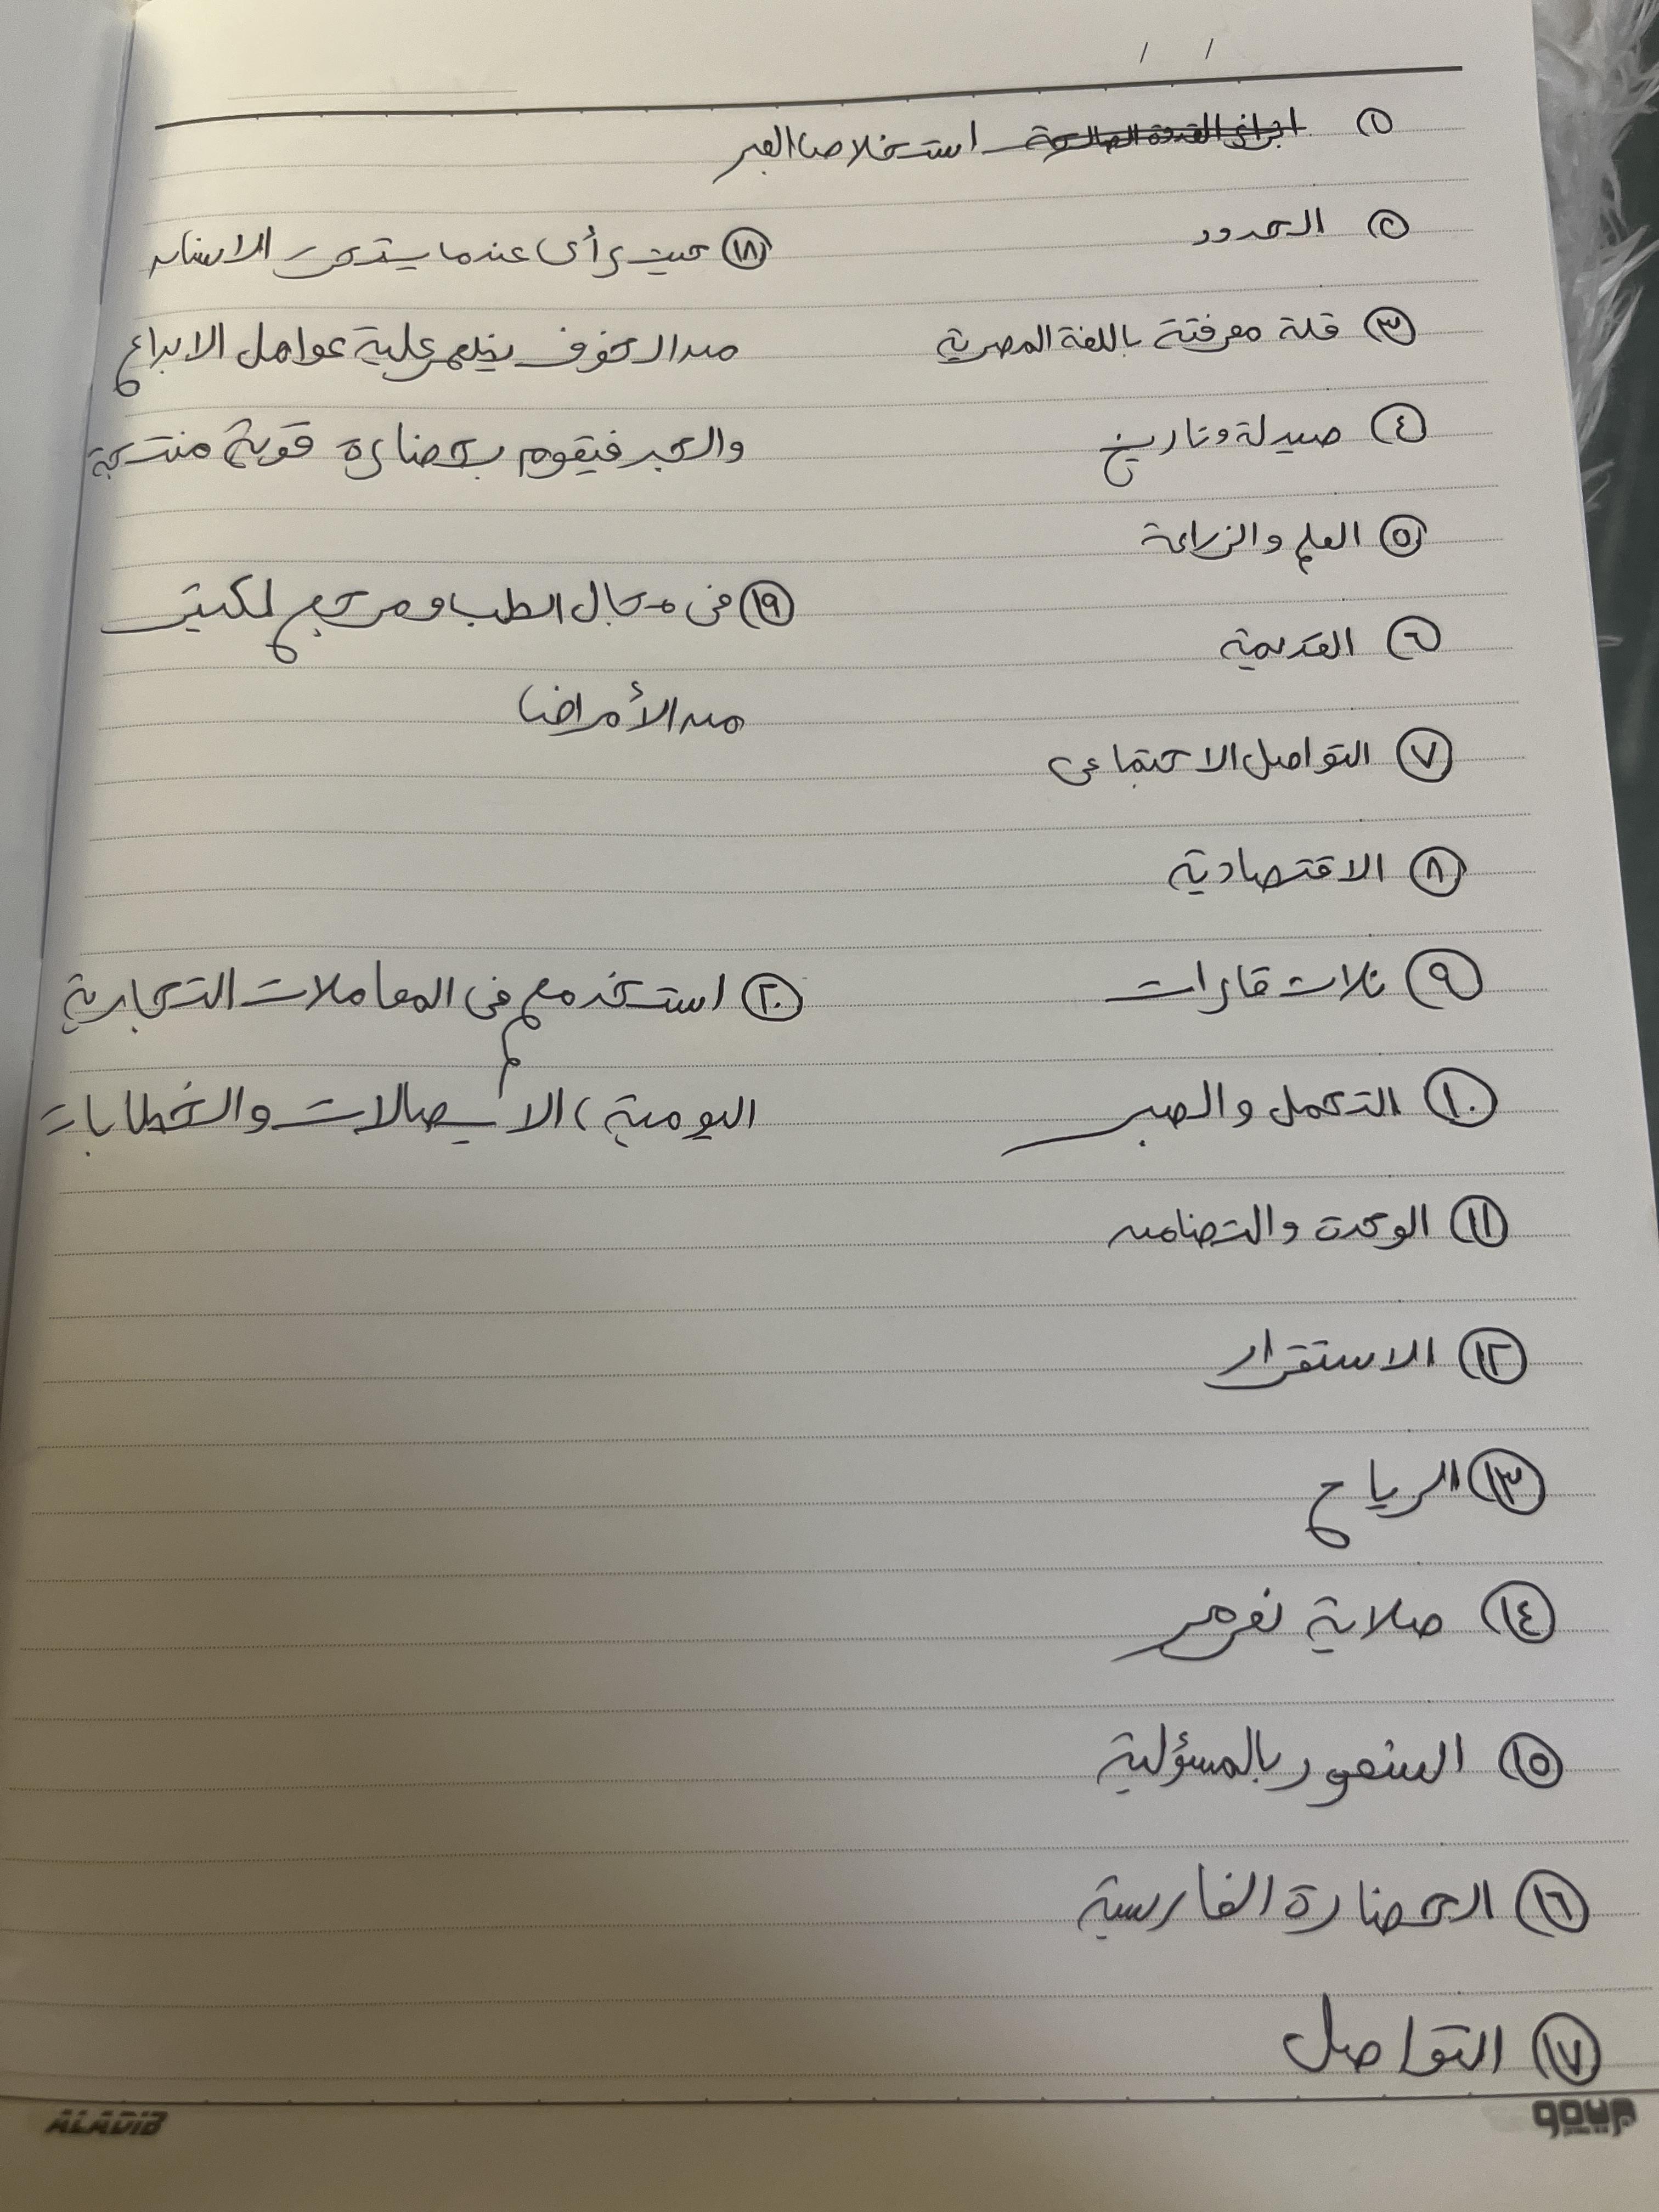 / /
١ ابراز القدوة الصالحة استخلاص العبر
٢ الحدود
٣ قلة معرفتة باللغة المصرية
٤ صيدلة وتاريخ
٥ العلم والزراعة
٦ القديمية
٧ التواصل الاجتماعى
٨ الاقتصادية
٩ ثلاث قارات
١٠ التحمل والصبر
١١ الوحدة والتضامن
١٢ الاستقرار
١٣ الرياح
١٤ صلاية نعرمر
١٥ الشعور بالمسؤلية
١٦ الحضارة الفارسية
١٧ التواصل
١٨ حيث رأى عندما يتحرر الانسان
من الخوف علية عوامل الابداع
والحبر فيقوم بحضارة قوية منتجة
١٩ فى مجال الطب ومرجع لكثير
من الأمراض
٢٠ استخدم فى المعاملات التجارية
اليومية، الأيصالات والخطابات
ALADIB
بريمو